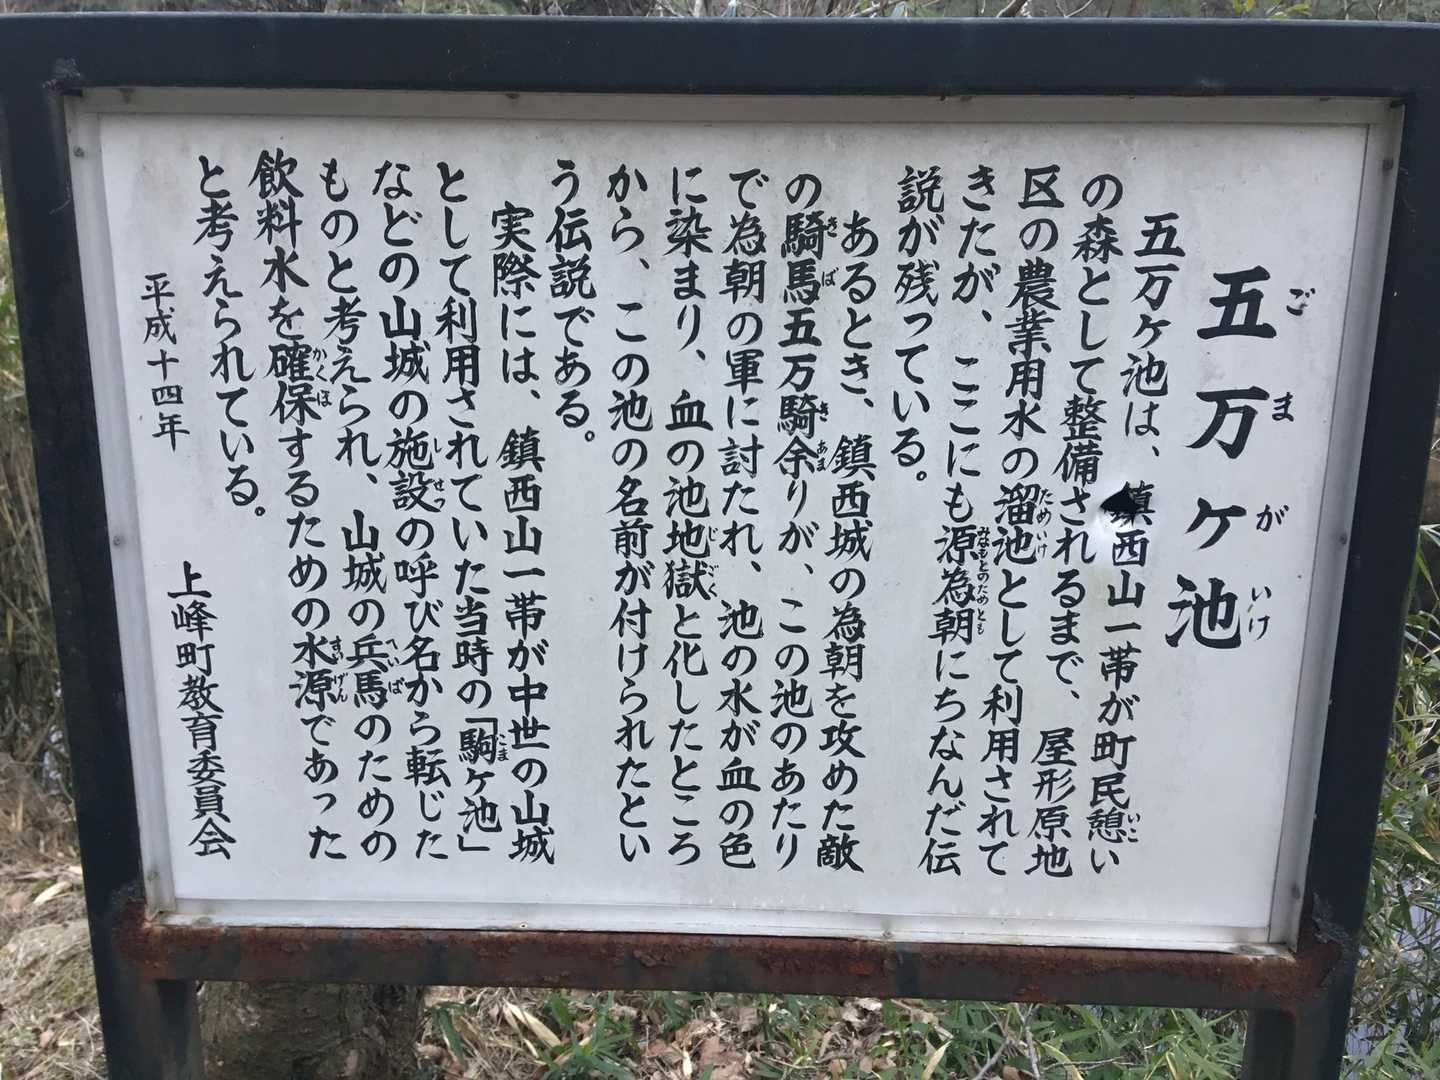 五万ヶ池
ごまがいけ
五万ヶ池は、鎮西山一帯が町民憩い
の森として整備されるまで、屋形原地
区の農業用水の溜池として利用されて
きたが、ここにも源為朝にちなんだ伝
説が残っている。
あるとき、鎮西城の為朝を攻めた敵
の騎馬五万騎余りが、この池のあたり
で為朝の軍に討たれ、池の水が血の色
に染まり、血の池地獄と化したところ
から、この池の名前が付けられたとい
う伝説である。
実際には、鎮西山一帯が中世の山城
として利用されていた当時の「駒ヶ池」
などの山城の施設の呼び名から転じた
ものと考えられ、山城の兵馬のための
飲料水を確保するための水源であった
と考えられている。
平成十四年
上峰町教育委員会